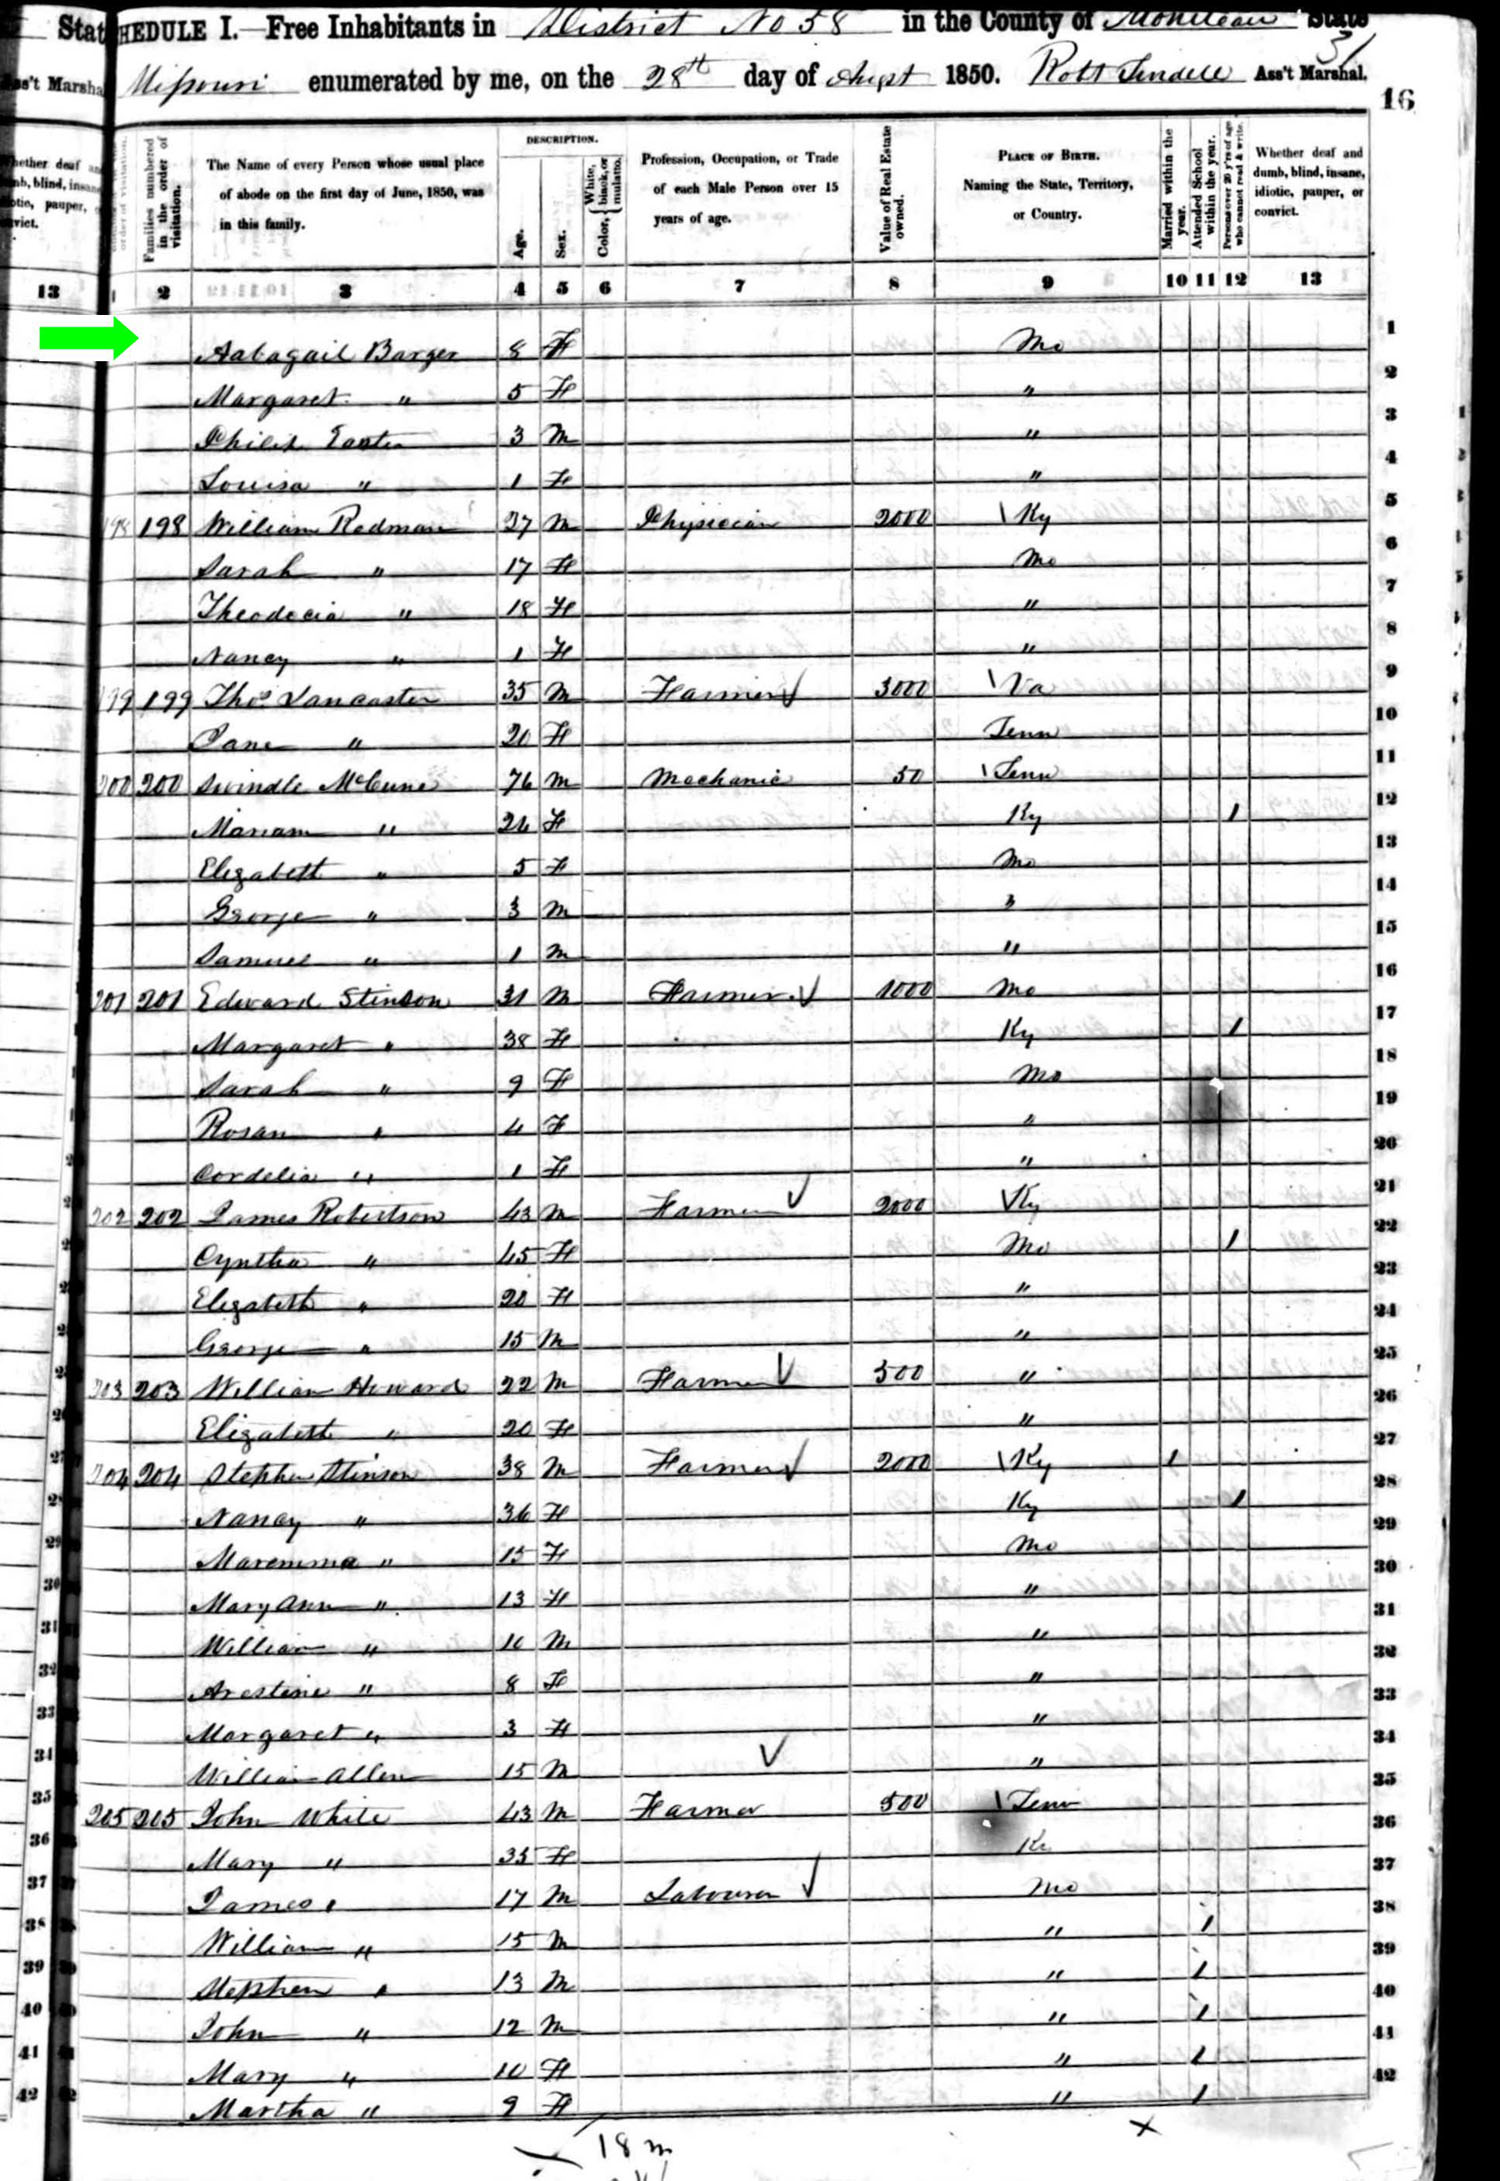 Stat HEDULE I.—Free Inhabitants in District No 58 in the County of Moniteau State
31
ss't Marsha Missouri enumerated by me, on the 28th day of Augst 1850. Robt Tindell Ass't Marshal.
16
DESCRIPTION.
Families numbered in the order of visitation.
The Name of every Person whose usual place of abode on the first day of June, 1850, was in this family.
Age.
Sex.
Color, { White, black, or mulatto.
Profession, Occupation, or Trade of each Male Person over 15 years of age.
Value of Real Estate owned.
PLACE OF BIRTH. Naming the State, Territory, or Country.
Married within the year.
Attended School within the year.
Persons over 20 y'rs of age who cannot read & write.
Whether deaf and dumb, blind, insane, idiotic, pauper, or convict.
13 1 2 3 4 5 6 7 8 9 10 11 12 13
Aabagail Barger 8 F Mo 1
Margaret " 5 F " 2
Philip Easter 3 M " 3
Louisa " 1 F " 4
198 198 William Redman 27 M Physician 2000 Ky 5
Sarah " 17 F Mo 6
Theodocia " 18 F " 7
Nancy " 1 F " 8
199 199 Thos Lancaster 35 M Farmer 3000 Va 9
Jane " 20 F Tenn 10
200 200 Swindle McCune 76 M Mechanic 50 Tenn 11
Mariam " 26 F Ky 1 12
Elizabeth " 5 F Mo 13
George " 3 M " 14
Samuel " 1 M " 15
201 201 Edward Stinson 31 M Farmer 1000 Mo 16
Margaret " 38 F Ky 1 17
Sarah " 9 F Mo 18
Rosan " 4 F " 19
Cordelia " 1 F " 20
202 202 James Robertson 43 M Farmer 2000 Ky 21
Cyntha " 45 F Mo 1 22
Elizabeth " 20 F " 23
George " 15 M " 24
203 203 William Howard 22 M Farmer 500 " 25
Elizabeth " 20 F " 26
204 204 Stephen Stinson 38 M Farmer 2000 Ky 1 27
Nancy " 36 F Ky 1 28
Maremma " 15 F Mo 29
Mary Ann " 13 F " 30
William " 10 M " 31
Arestine " 8 F " 32
Margaret " 3 F " 33
William Allen 15 M " 34
205 205 John White 43 M Farmer 500 Tenn 35
Mary " 35 F Ky 36
James " 17 M Labourer Mo 37
William " 15 M " 1 38
Stephen " 13 M " 1 39
John " 12 M " 1 40
Mary " 10 F " 1 41
Martha " 9 F " 1 42
18 m
x